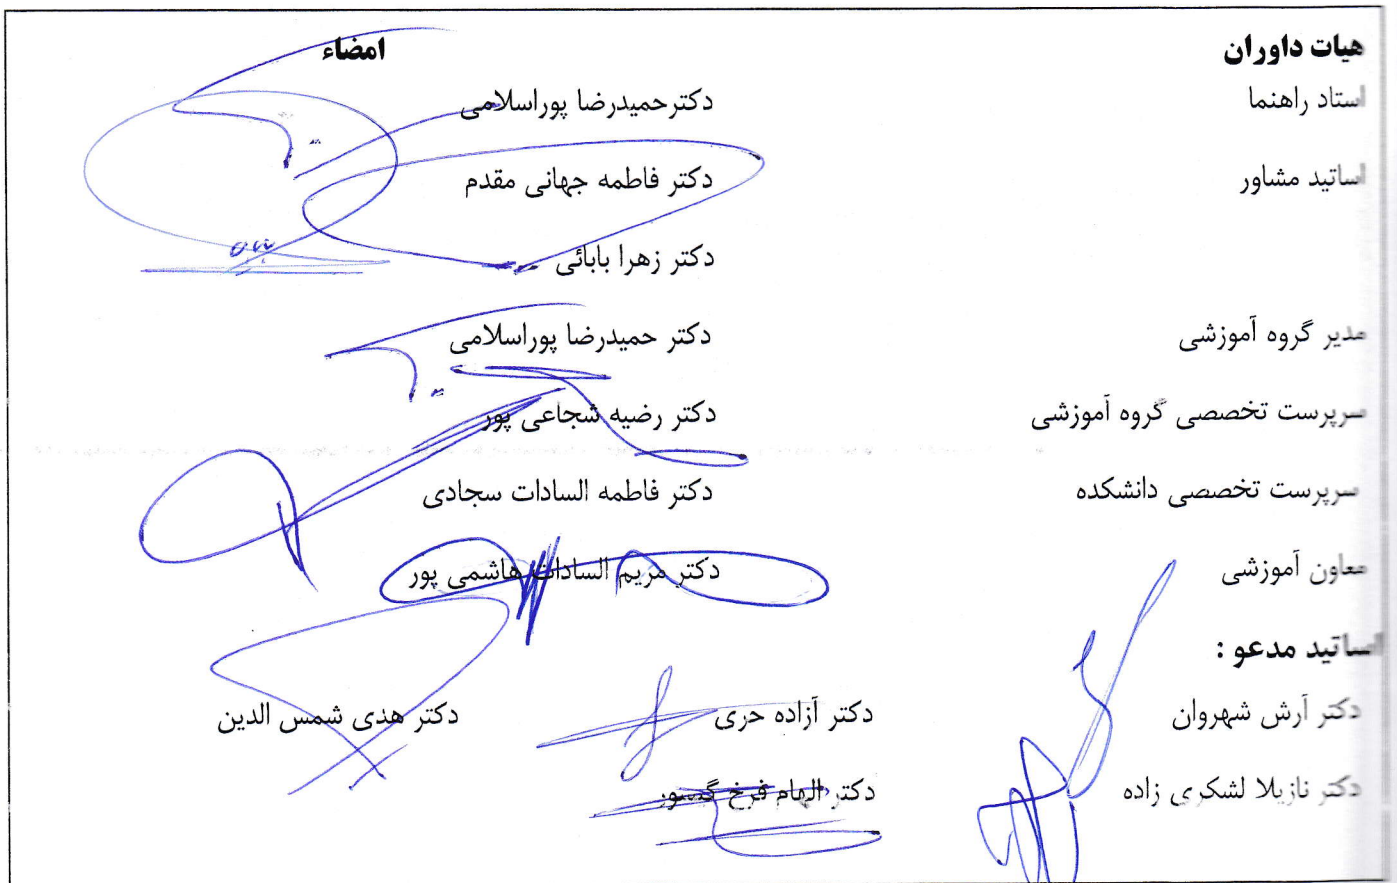 هیات داوران امضاء
استاد راهنما دکترحمیدرضا پوراسلامی
اساتید مشاور دکتر فاطمه جهانی مقدم
دکتر زهرا بابائی
مدیر گروه آموزشی دکتر حمیدرضا پوراسلامی
سرپرست تخصصی گروه آموزشی دکتر رضیه شجاعی پور
سرپرست تخصصی دانشکده دکتر فاطمه السادات سجادی
معاون آموزشی دکتر مریم السادات هاشمی پور
اساتید مدعو :
دکتر آرش شهروان دکتر آزاده حری دکتر هدی شمس الدین
دکتر نازیلا لشکری زاده دکتر الهام فرخ